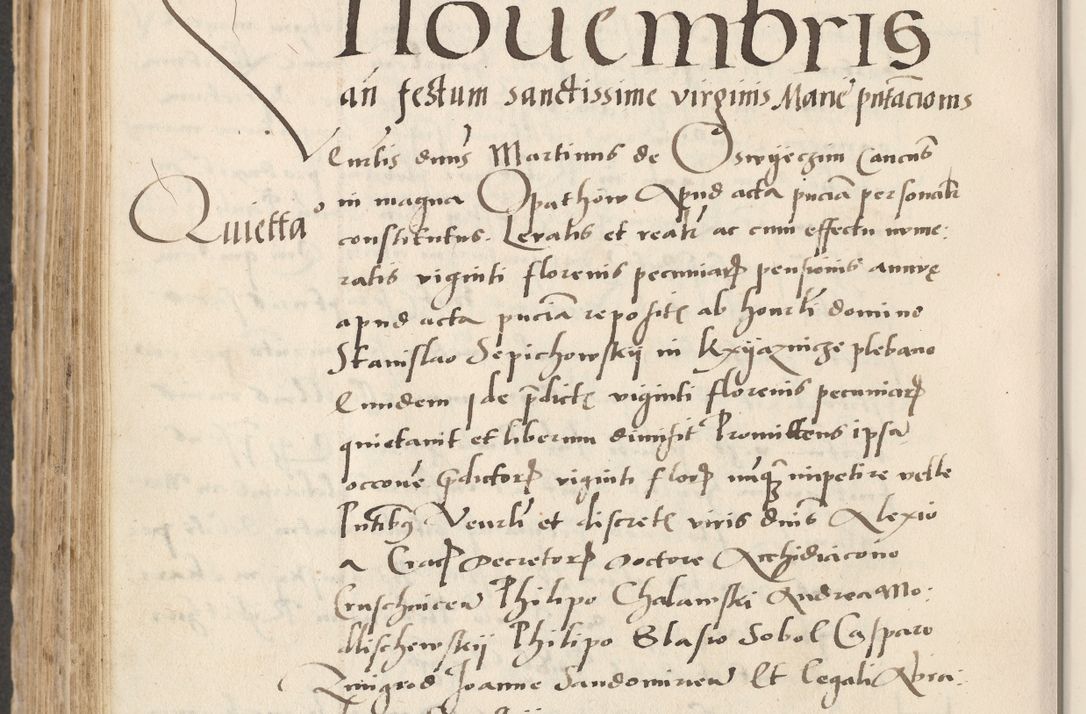 Nouembris
an festum sanctissime virginis Marie pntacionis
dnus Martinus de Oswyeczim Cancus
in magna Opathow Apud acta pncia personalr
Quietta
constitutus. Leualis et realr ac cum effectu nume:
ratis viginti florenis pecuniar pensionis annue
apud acta pncia reposite ab honrli domino
Stanislao Sepichowskij in Kxyaznicze plebano
Eundem de pdicte viginti florenis pecuniar
quietauit et liberum dimisit Promittens ipsa
occoue pdictor viginti flor nuqz impetire velle
Pntibus Venrli et discrete viris dnis Alexio
a Decretor Doctore Archidiacono
Cruschuicen Philipo Chalawski Andrea Mo:
dlischewskij Philipo Blasio Sobol Casparo
Zmigrod Joanne Sandomirien Et Legali